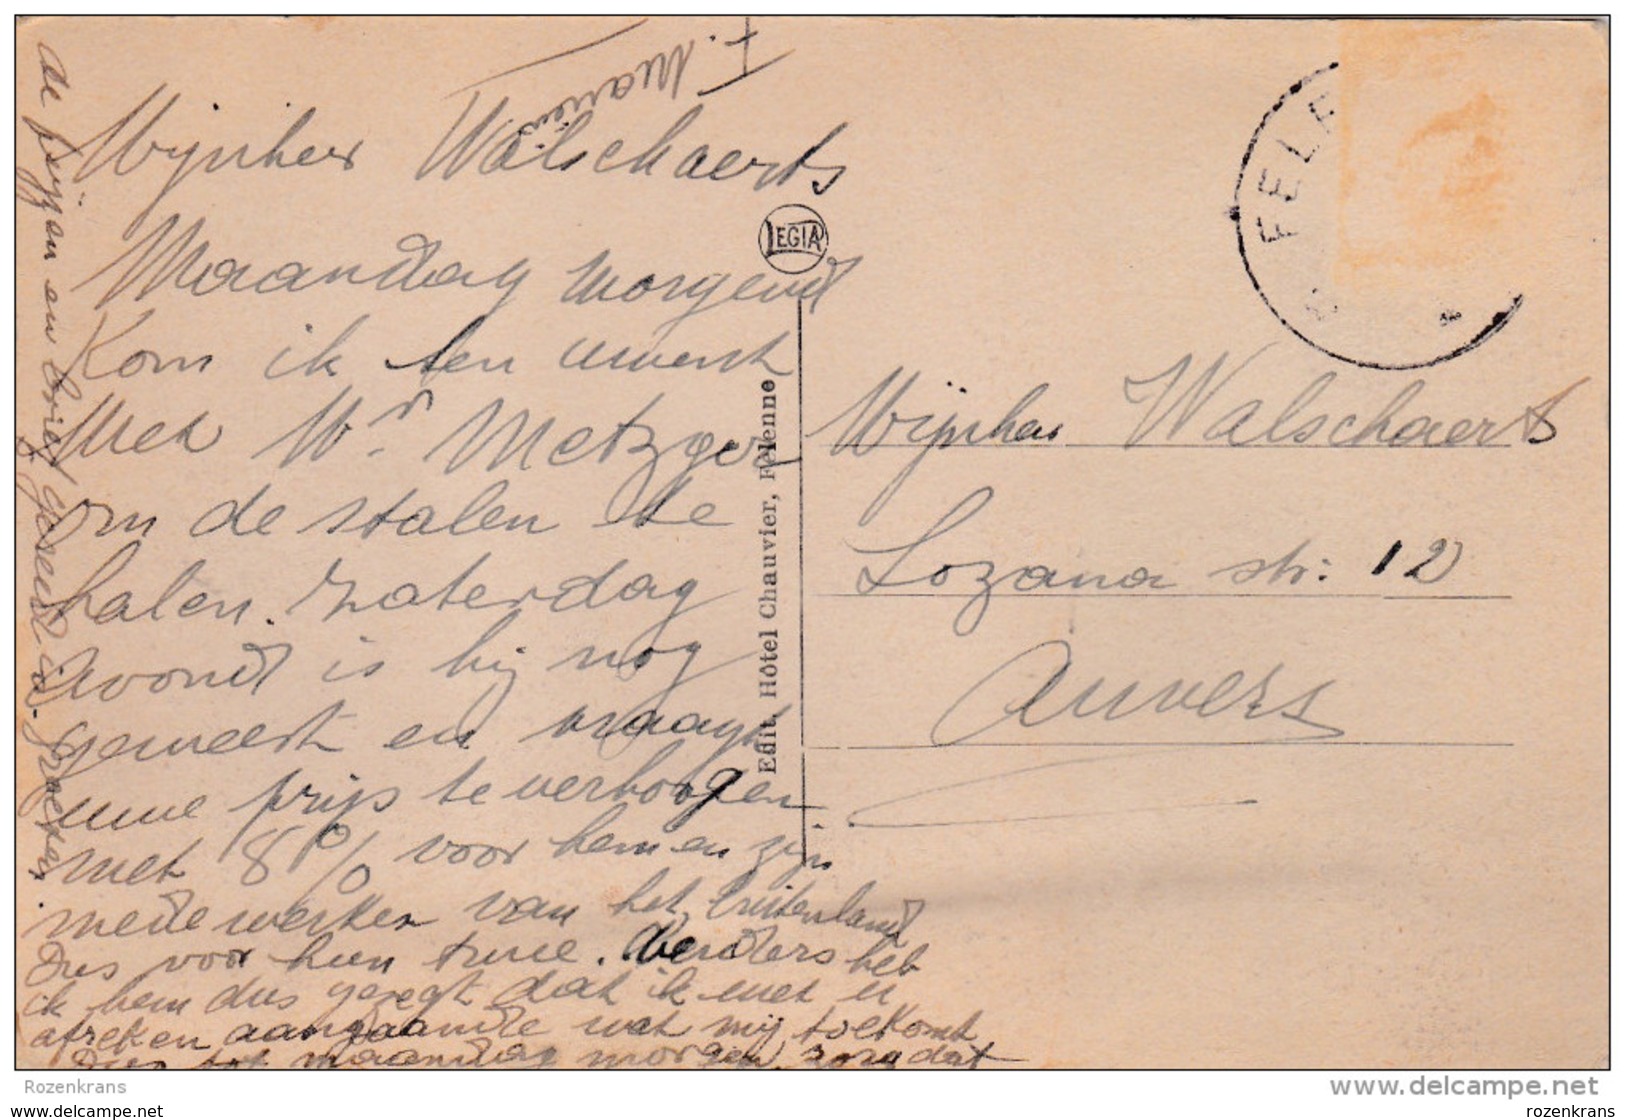 Wijnheer Walschaerts
Maandag morgend
Kom ik ten uwent
met Mr Metzger
om de stalen te
halen. Zaterdag
avond is hij nog
geweest en vraagt
uwe prijs te verhoogen
met 8% voor hem en zijn
medewerker van het buitenland
Dus voor hun twee. Verders heb
ik hem dus gezegt dat ik met u
afreken aangaande wat mij toekomt
Dus tot maandag morgen, zorg dat
de prijzen en brief gereed is. Groeten.
F. Mariën
LEGIA
Edit. Hôtel Chauvier, Felenne
FELE
Wijnheer Walschaerts
Lozana str: 12
Anvers
Rozenkrans
only-on-delcampe.com
www.delcampe.net
rozenkrans